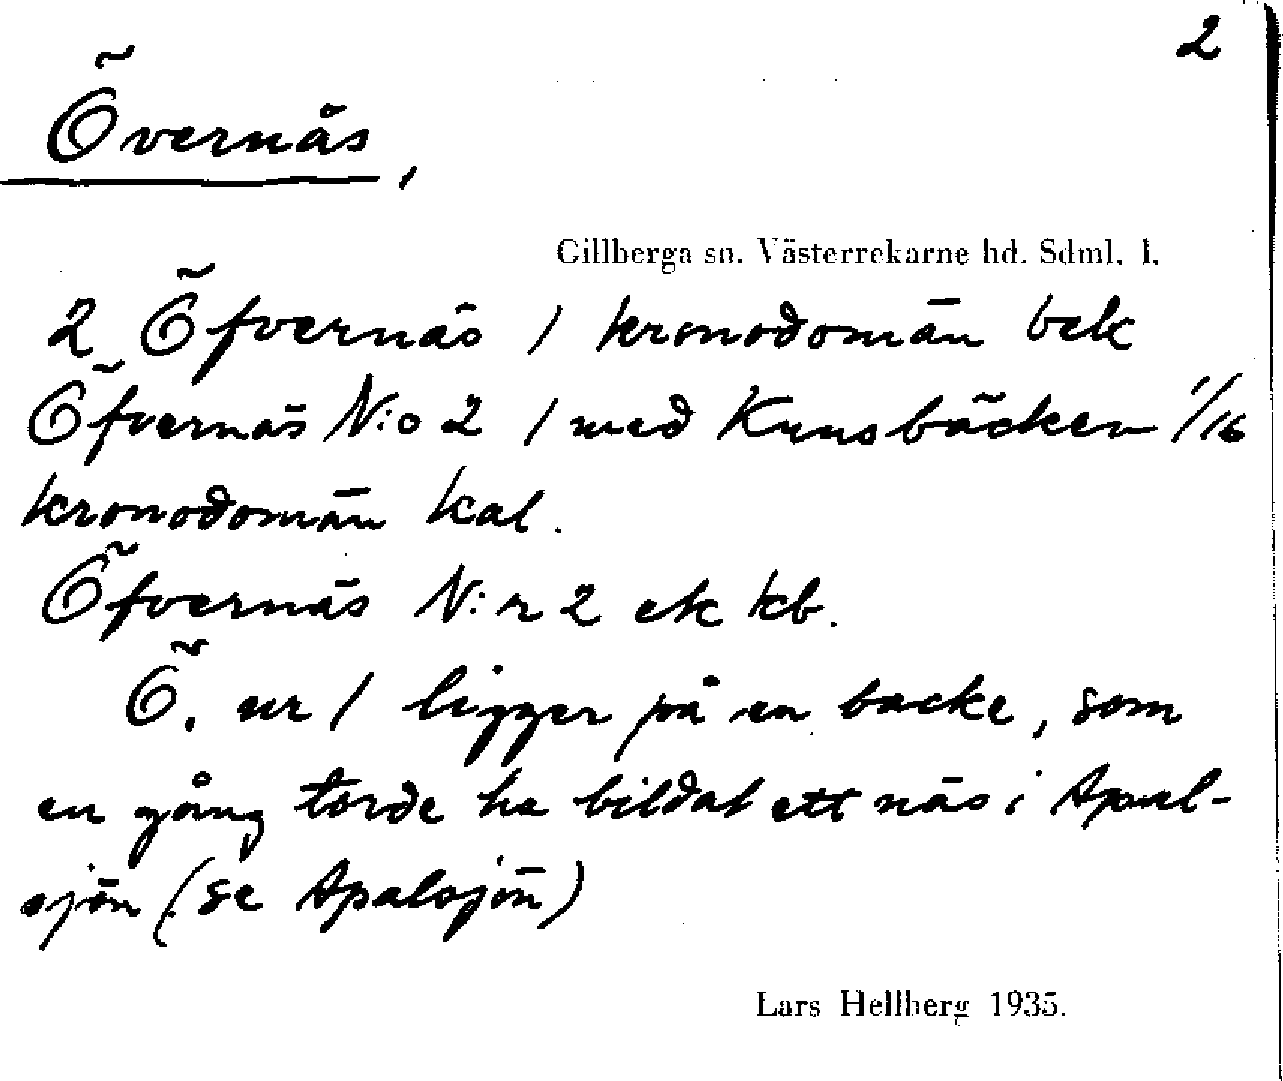 2
Övernäs,
Gillberga sn. Västerrekarne hd. Sdml. l.
2 Öfvernäs 1 kronodomän bek
Öfvernäs N:o 2 1 med Knusbäcken 1/16
kronodomän kal.
Öfvernäs N:r 2 ek kb.
Ö. nr 1 ligger på en backe, som
en gång torde ha bildat ett näs i Apal-
sjön (se Apalsjön)
Lars Hellberg 1935.